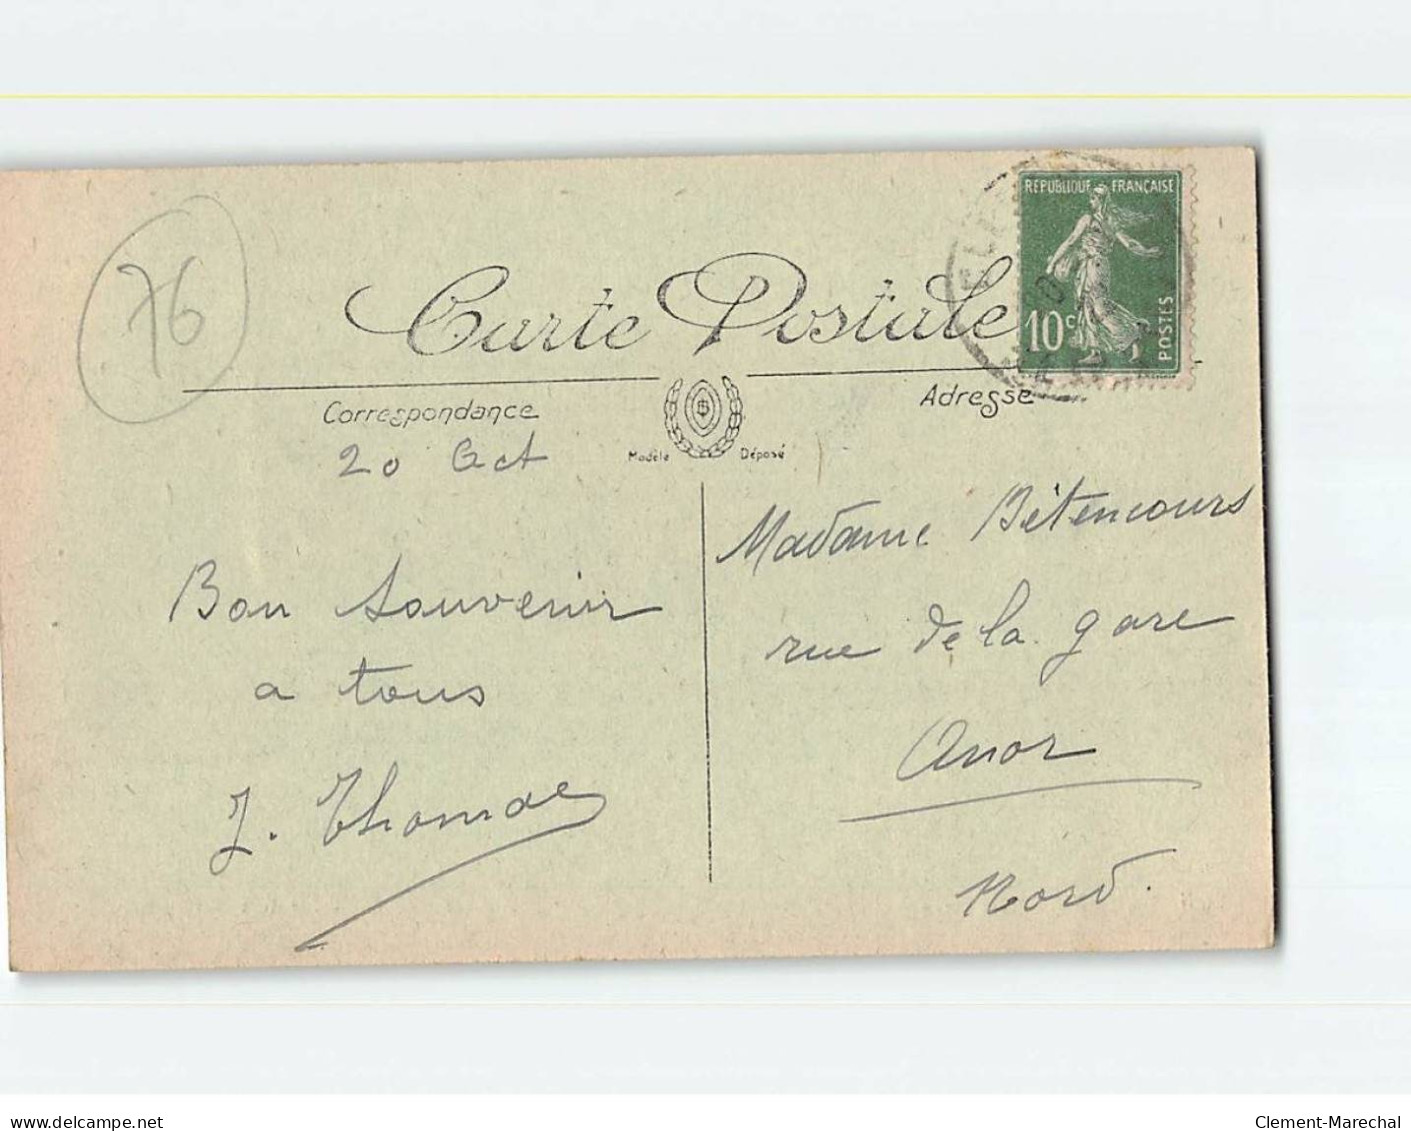 76
RÉPUBLIQUE FRANÇAISE
10c
POSTES
Carte Postale
Correspondance
Adresse
Modèle Déposé
20 Oct
Bon Souvenir
a tous
J. Thomas
Madame Bétencours
rue de la gare
Anor
Nord.
delcampe.net
Clement-Marechal